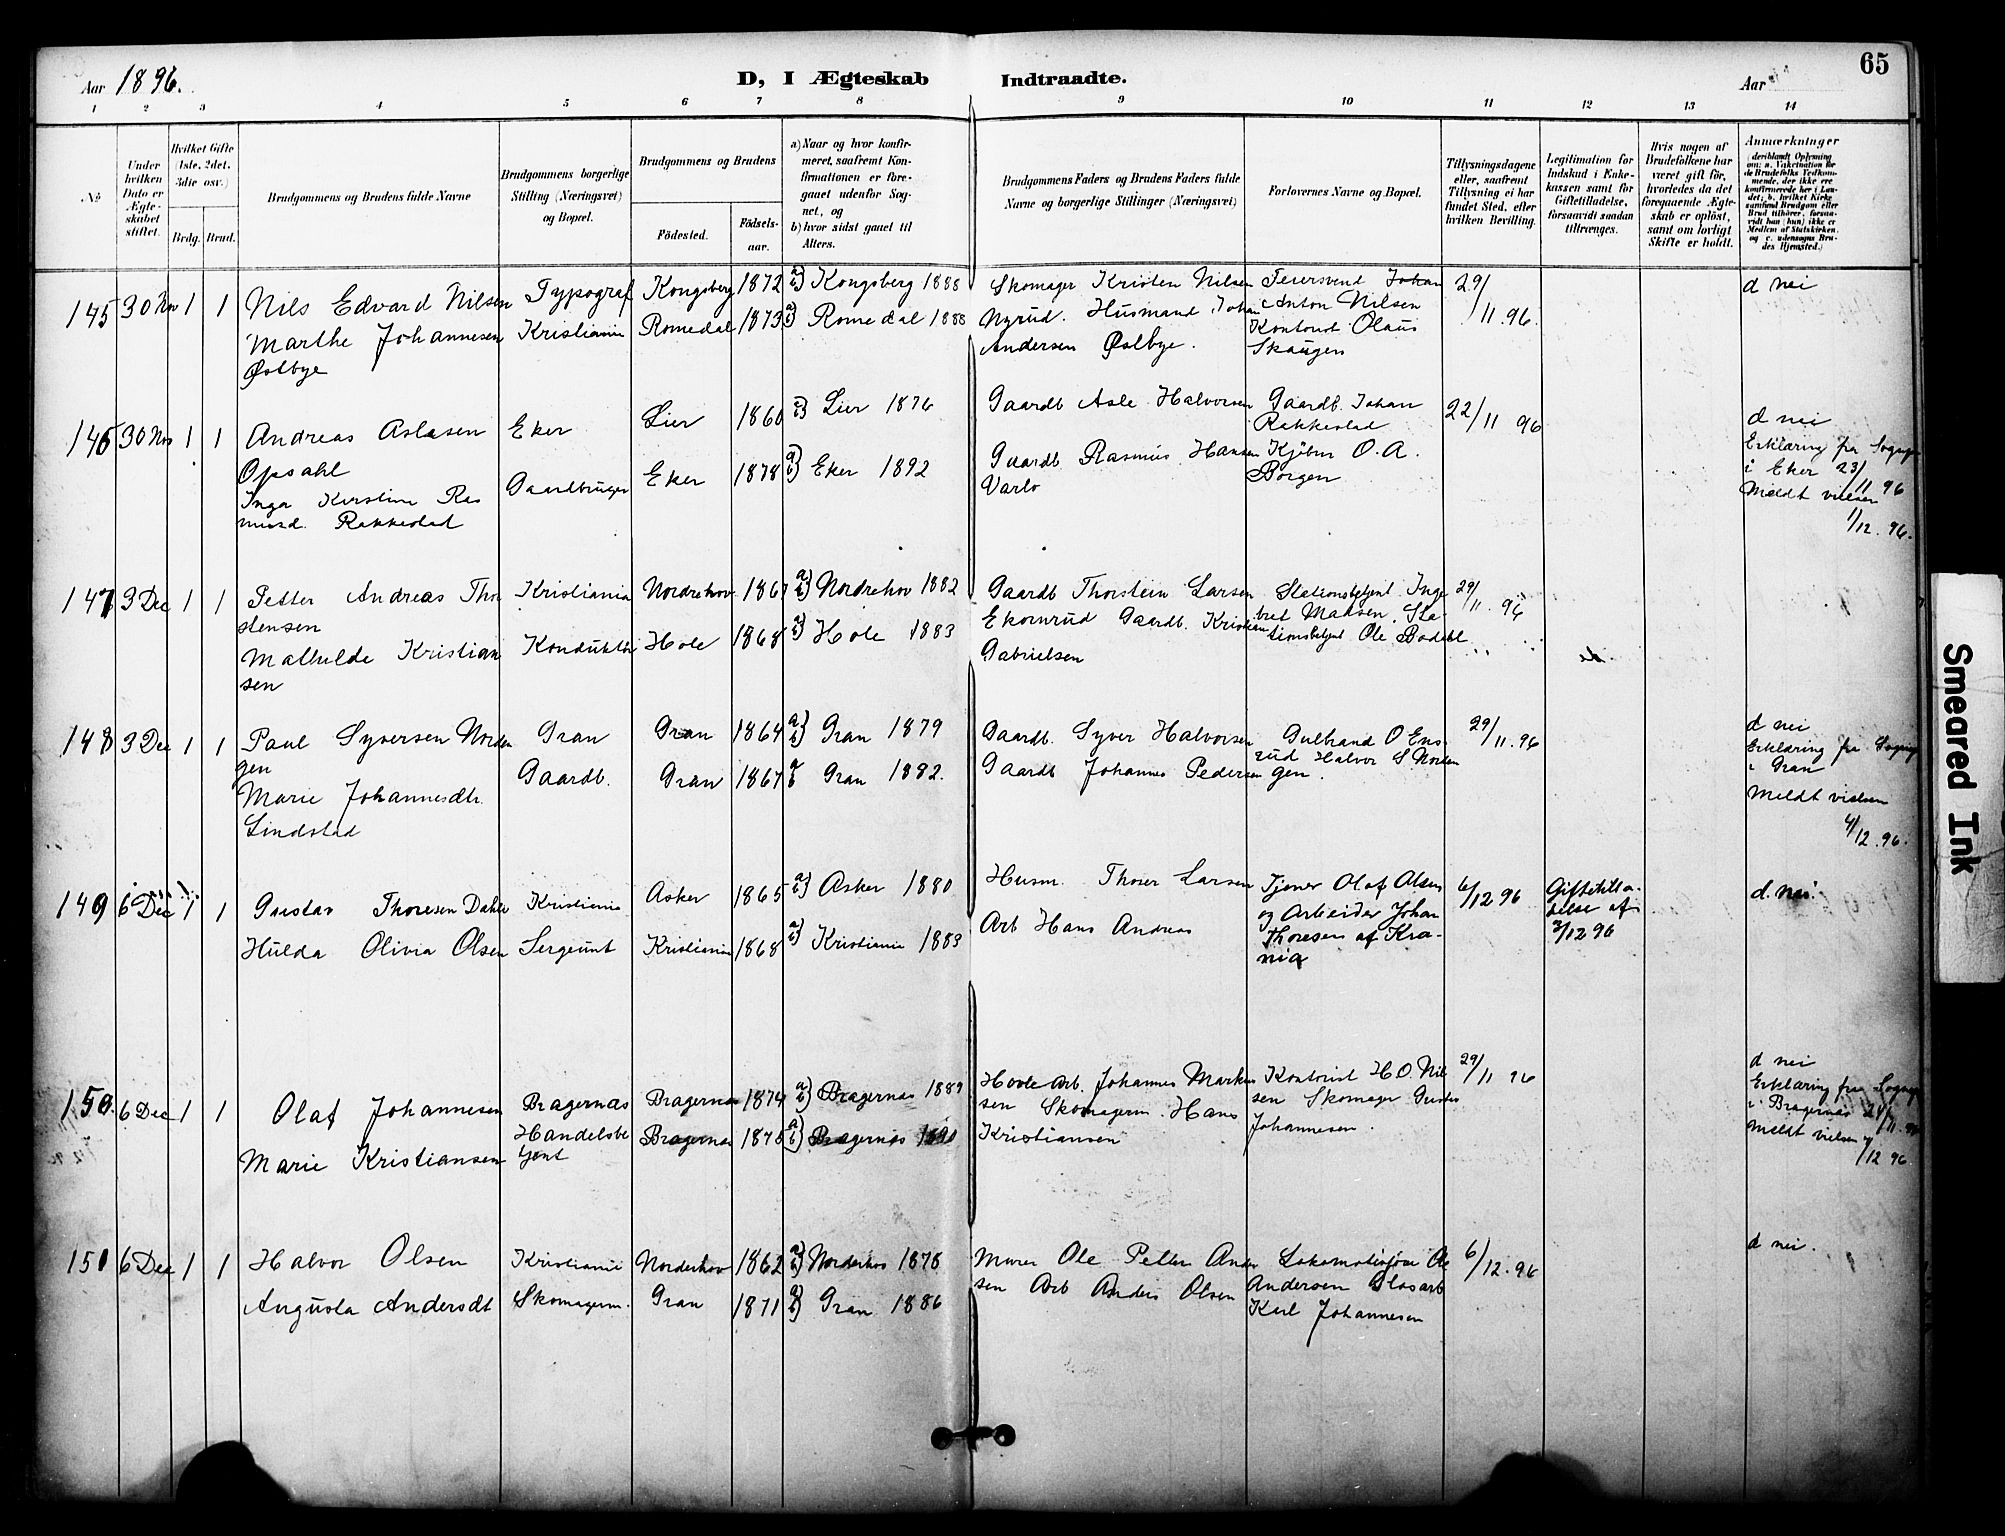 65
Aar 1896.
D, I Ægteskab Indtraadte.
Aar
1 2 3 4 5 6 7 8 9 10 11 12 13 14
No.
Under hvilken Dato er Ægteskabet stiftet.
Hvilket Gifte (1ste, 2det, 3die osv.)
Brdg. Brud.
Brudgommens og Brudens fulde Navne
Brudgommens borgerlige Stilling (Næringsvei) og Bopæl.
Brudgommens og Brudens
Födested. Födsels-aar.
a) Naar og hvor konfirmeret, saafremt Konfirmationen er foregaaet udenfor Sognet, og
b) hvor sidst gaaet til Alters.
Brudgommens Faders og Brudens Faders fulde Navne og borgerlige Stillinger (Næringsvei)
Forlovernes Navne og Bopæl.
Tillysningsdagene eller, saafremt Tillysning ei har fundet Sted, efter hvilken Bevilling.
Legitimation for Indskud i Enkekassen samt for Giftetilladelse, forsaavidt saadan tiltrænges.
Hvis nogen af Brudefolkene har været gift för, hvorledes da det foregaaende Ægteskab er oplöst, samt om lovligt Skifte er holdt.
Anmærkninger
(deriblandt Oplysning om: a. Vakcination for de Brudefolks Vedkommende, der ikke ere konfirmerede her i Landet; b. hvilket Kirkesamfund Brudgom eller Brud tilhörer, forsaavidt han (hun) ikke er Medlem af Statskirken, og c. udensogns Brudes Hjemsted.)
145 30 Nov 1 1 Nils Edvard Nilsen Typograf Kongsberg 1872 a) b) Kongsberg 1888 Skomager Kristen Nilsen Feiersvend Johan 29/11. 96. d nei
Marthe Johannesen Kristiania Romedal 1873 a) b) Romedal 1888 Nyrud. Husmand Johan Anton Nilsen
Østbye Andersen Østbye. Kontorist Olaus
Skaugen
146 30 Nov 1 1 Andreas Aslasen Eker Lier 1860 a) b) Lier 1876 Gaardb Asle Halvorsen Gaardb. Johan 22/11 96 d nei
Opsahl Rakkestad Erklæring fra Sognep
Inga Kirstine Ras Gaardbruger Eker 1878 a) b) Eker 1892 Gaardb Rasmus Hansen Kjøbm O. A. i Eker 23/11 96
musd. Rakkestad Varlo Borgen Meldt vielsen
1/12. 96.
147 3 Dec 1 1 Petter Andreas Thor Kristiania Norderhov 1867 a) b) Nordrehov 1882 Gaardb Thorstein Larsen Stationsbetjent Inge 29/11. 96
stensen Ekornrud Gaardb. Kristian bret Madsen. Sta
Mathilde Kristian Konduktör Hole 1868 a) b) Hole 1883 Gabrielsen tionsbetjent Ole Bodahl
sen
148 3 Dec 1 1 Paul Syversen Norden Gran Gran 1864 a) b) Gran 1879 Gaardb. Syver Halvorsen Gulbrand O Ens 29/11. 96 d nei
gen rud Halvor S Norden Erklæring fra Sognep
Marie Johannesdtr. Gaardb. Gran 1867 a b Gran 1882. Gaardb Johannes Pedersen gen. i Gran
Lindstad Meldt vielsen
4/12. 96.
149 6 Dec 1 1 Gustav Thoresen Dahle Kristiania Asker 1865 a) b) Asker 1880 Husm. Thorer Larsen Tjener Olaf Olsen 6/12 96 Giftetilla- d. nei.
og Arbeider Johan delse af
Hulda Olivia Olsen Sergeant Kristiania 1868 a) b) Kristiania 1883 Arb Hans Andreas Thoresen af Kra- 2/12 96
nia
150. 6 Dec 1 1 Olaf Johannesen Bragernæs Bragernæs 1874 a) b) Bragernæs 1889 Hovle Arb. Johannes Marken Kontorist H.O. Nil 29/11 96 d nei
Handelsbe sen Skomagerm. Hans sen Skomager Gustav Erklæring fra Sognep
Marie Kristiansen tjent Bragernæs 1875 a) b) Bragernæs 1890 Kristiansen Johannesen. i Bragernæs 24/11. 96
Meldt vielsen 7/12 96.
151 6 Dec 1 1 Halvor Olsen Kristiania Norderhov 1862 a) b) Norderhov 1878 Murer Ole Petter Ander Lokomotivförer Ole 6/12. 96 d nei.
Augusta Andersdt Skomagerm. Gran 1871 a) b) Gran 1886 sen Arb Anders Olsen Andersen Glasarb
Karl Johannesen
Smeared Ink